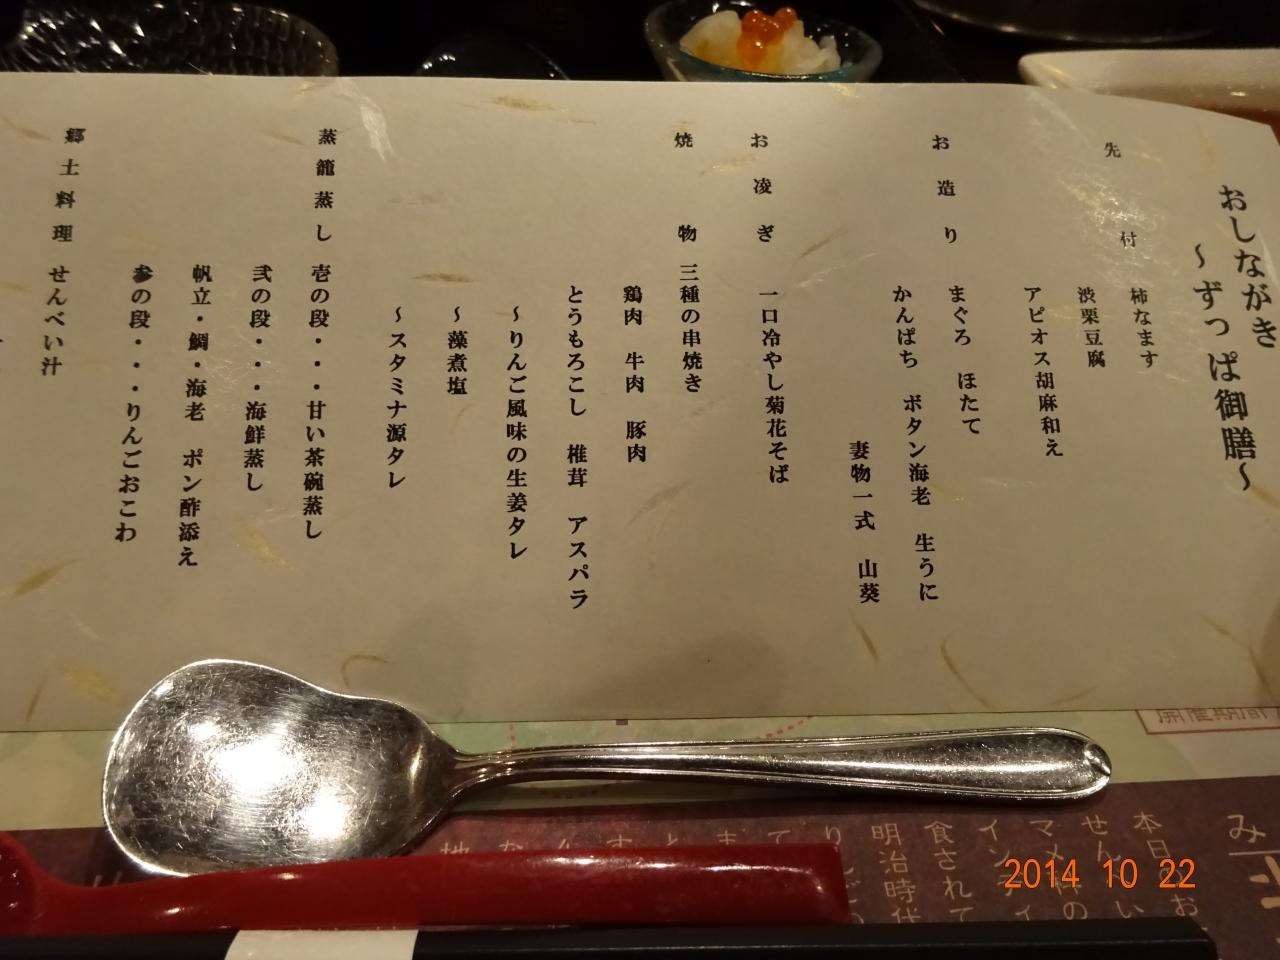 おしながき
～ずっぱ御膳～
先付 柿なます
渋栗豆腐
アピオス胡麻和え
お造り まぐろ ほたて
かんぱち ボタン海老 生うに
妻物一式 山葵
お凌ぎ 一口冷やし菊花そば
焼物 三種の串焼き
鶏肉 牛肉 豚肉
とうもろこし 椎茸 アスパラ
～りんご風味の生姜タレ
～藻煮塩
～スタミナ源タレ
蒸籠蒸し 壱の段・・・甘い茶碗蒸し
弐の段・・・海鮮蒸し
帆立・鯛・海老 ポン酢添え
参の段・・・りんごおこわ
郷土料理 せんべい汁
開催期間
み
本日のお
せんい
マメ科の
インディ
食されて
明治時代
りんごの
2014 10 22